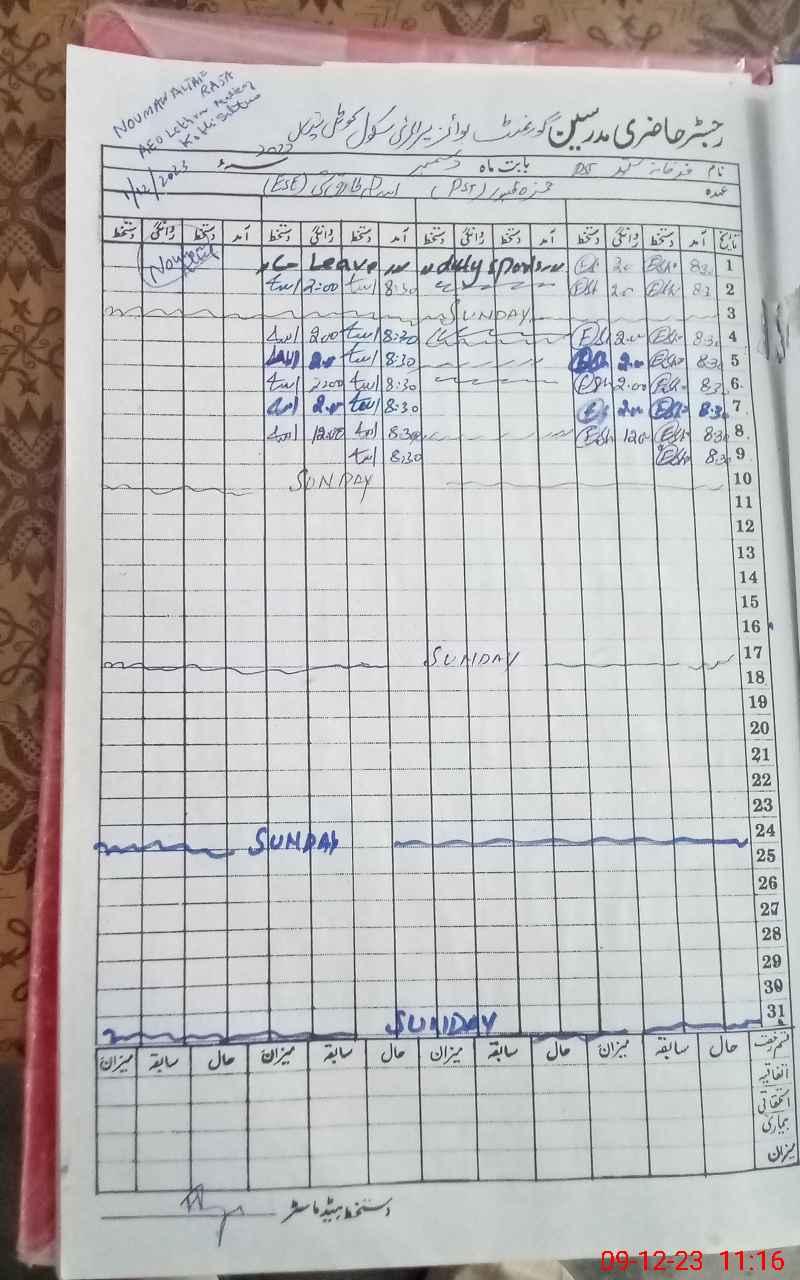 NOUMAN ALTAF
RAJA
AEO
1/12/2023
رجسٹر حاضری مدرسین گورنمنٹ بوائز پرائمری سکول
نام بابت ماہ دسمبر 2023ء
عہدہ PST (PST) (ESE)
تاریخ آمد دستخط روانگی دستخط آمد دستخط روانگی دستخط آمد دستخط روانگی دستخط آمد دستخط روانگی دستخط
1 8:30 Esh 2:00 Esh duty sports Leave
2 8:30 Esh 2:00 Esh 8:30 2:00
3 SUNDAY
4 8:30 Esh 2:00 Esh 8:30 2:00
5 8:30 Esh 2:00 Esh 8:30 2:00
6 8:30 Esh 2:00 Esh 8:30 2:00
7 8:30 Esh 2:00 8:30 2:00
8 8:30 Esh 12:00 Esh 8:30 12:00
9 8:30 Esh 8:30
10 SUNDAY
11
12
13
14
15
16
17 SUNDAY
18
19
20
21
22
23
24 SUNDAY
25
26
27
28
29
30
31 SUNDAY
قسم رخصت حال سابقہ میزان حال سابقہ میزان حال سابقہ میزان حال سابقہ میزان
اتفاقیہ
استحقاقی
بیماری
میزان
دستخط ہیڈ ماسٹر
09-12-23 11:16